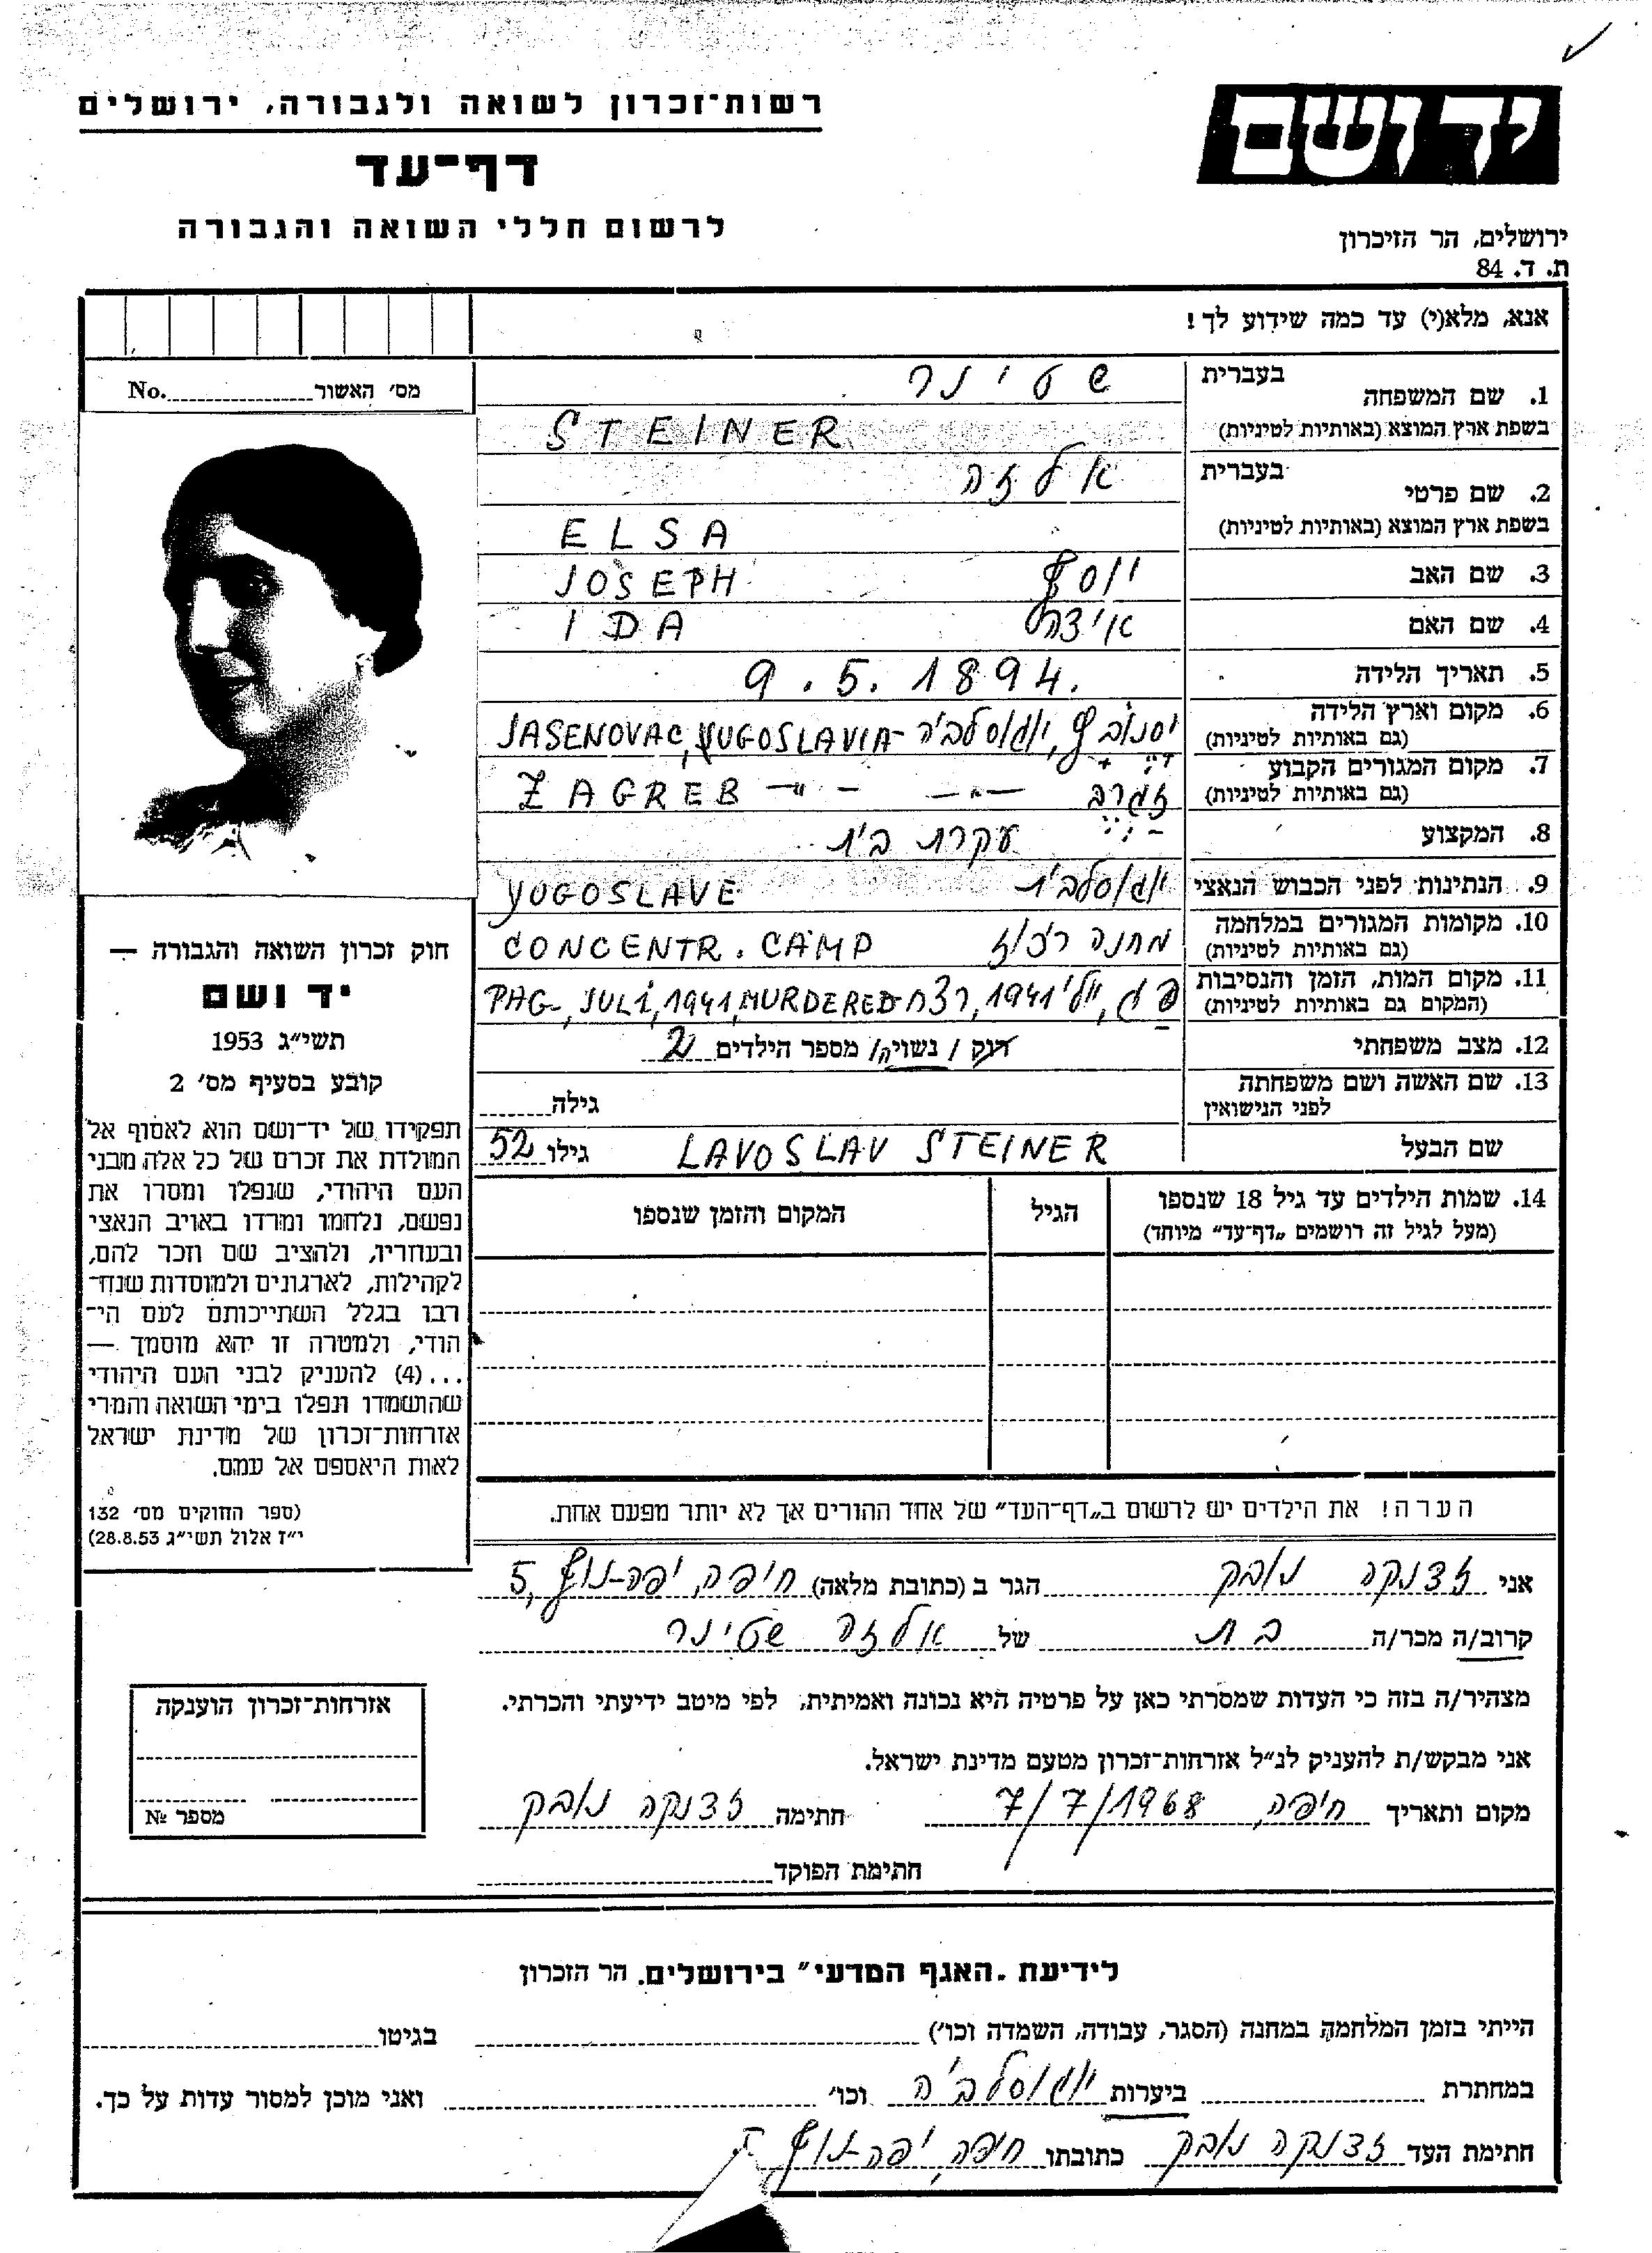 רשות־זכרון לשואה ולגבורה, ירושלים
דף־עד
לרשום חללי השואה והגבורה
יד ושם
ירושלים, הר הזיכרון
ת. ד. 84
אנא, מלא(י) עד כמה שידוע לך!
מס׳ האשור No.
1. שם המשפחה בעברית שטינר
בשפת ארץ המוצא (באותיות לטיניות) STEINER
2. שם פרטי בעברית אלזה
בשפת ארץ המוצא (באותיות לטיניות) ELSA
3. שם האב יוסף JOSEPH
4. שם האם אידה IDA
5. תאריך הלידה 9.5.1894.
6. מקום וארץ הלידה (גם באותיות לטיניות) יסנובץ, יוגוסלביה - JASENOVAC, YUGOSLAVIA
7. מקום המגורים הקבוע (גם באותיות לטיניות) זגרב —״— ZAGREB —״—
8. המקצוע עקרת בית
9. הנתינות לפני הכבוש הנאצי יוגוסלבית YUGOSLAVE
10. מקומות המגורים במלחמה (גם באותיות לטיניות) מחנה ריכוז CONCENTR. CAMP
11. מקום המות, הזמן והנסיבות (המקום גם באותיות לטיניות) פג, יולי 1941, רצח PAG, JULI, 1941, MURDERED
12. מצב משפחתי רוק / נשוי/ה / מספר הילדים 2
13. שם האשה ושם משפחתה לפני הנישואין גילה
שם הבעל LAVOSLAV STEINER גילו 52
14. שמות הילדים עד גיל 18 שנספו הגיל המקום והזמן שנספו
(מעל לגיל זה רושמים „דף־עד״ מיוחד)
חוק זכרון השואה והגבורה —
יד ושם
תשי״ג 1953
קובע בסעיף מס׳ 2
תפקידו של יד־ושם הוא לאסוף אל
המולדת את זכרם של כל אלה מבני
העם היהודי, שנפלו ומסרו את
נפשם, נלחמו ומרדו באויב הנאצי
ובעוזריו, ולהציב שם וזכר להם,
לקהילות, לארגונים ולמוסדות שנח־
רבו בגלל השתייכותם לעם הי־
הודי, ולמטרה זו יהא מוסמך —
...(4) להעניק לבני העם היהודי
שהושמדו ונפלו בימי השואה והמרי
אזרחות־זכרון של מדינת ישראל
לאות היאספם אל עמם.
(ספר החוקים מס׳ 132
י״ז אלול תשי״ג 28.8.53)
הערה! את הילדים יש לרשום ב„דף־העד״ של אחד ההורים אך לא יותר מפעם אחת.
אני זדנקה נובק הגר ב (כתובת מלאה) חיפה, יפה-נוף 5,
קרוב/ה מכר/ה בת של אלזה שטינר
מצהיר/ה בזה כי העדות שמסרתי כאן על פרטיה היא נכונה ואמיתית, לפי מיטב ידיעתי והכרתי.
אני מבקש/ת להעניק לנ״ל אזרחות־זכרון מטעם מדינת ישראל.
מקום ותאריך חיפה, 7/7/1968 חתימה זדנקה נובק
חתימת הפוקד
אזרחות־זכרון הוענקה
מספר №
לידיעת „האגף המדעי״ בירושלים. הר הזכרון
הייתי בזמן המלחמה במחנה (הסגר, עבודה, השמדה וכו׳) בגיטו
במחתרת ביערות יוגוסלביה וכו׳ ואני מוכן למסור עדות על כך.
חתימת העד זדנקה נובק כתובתו חיפה, יפה-נוף 5